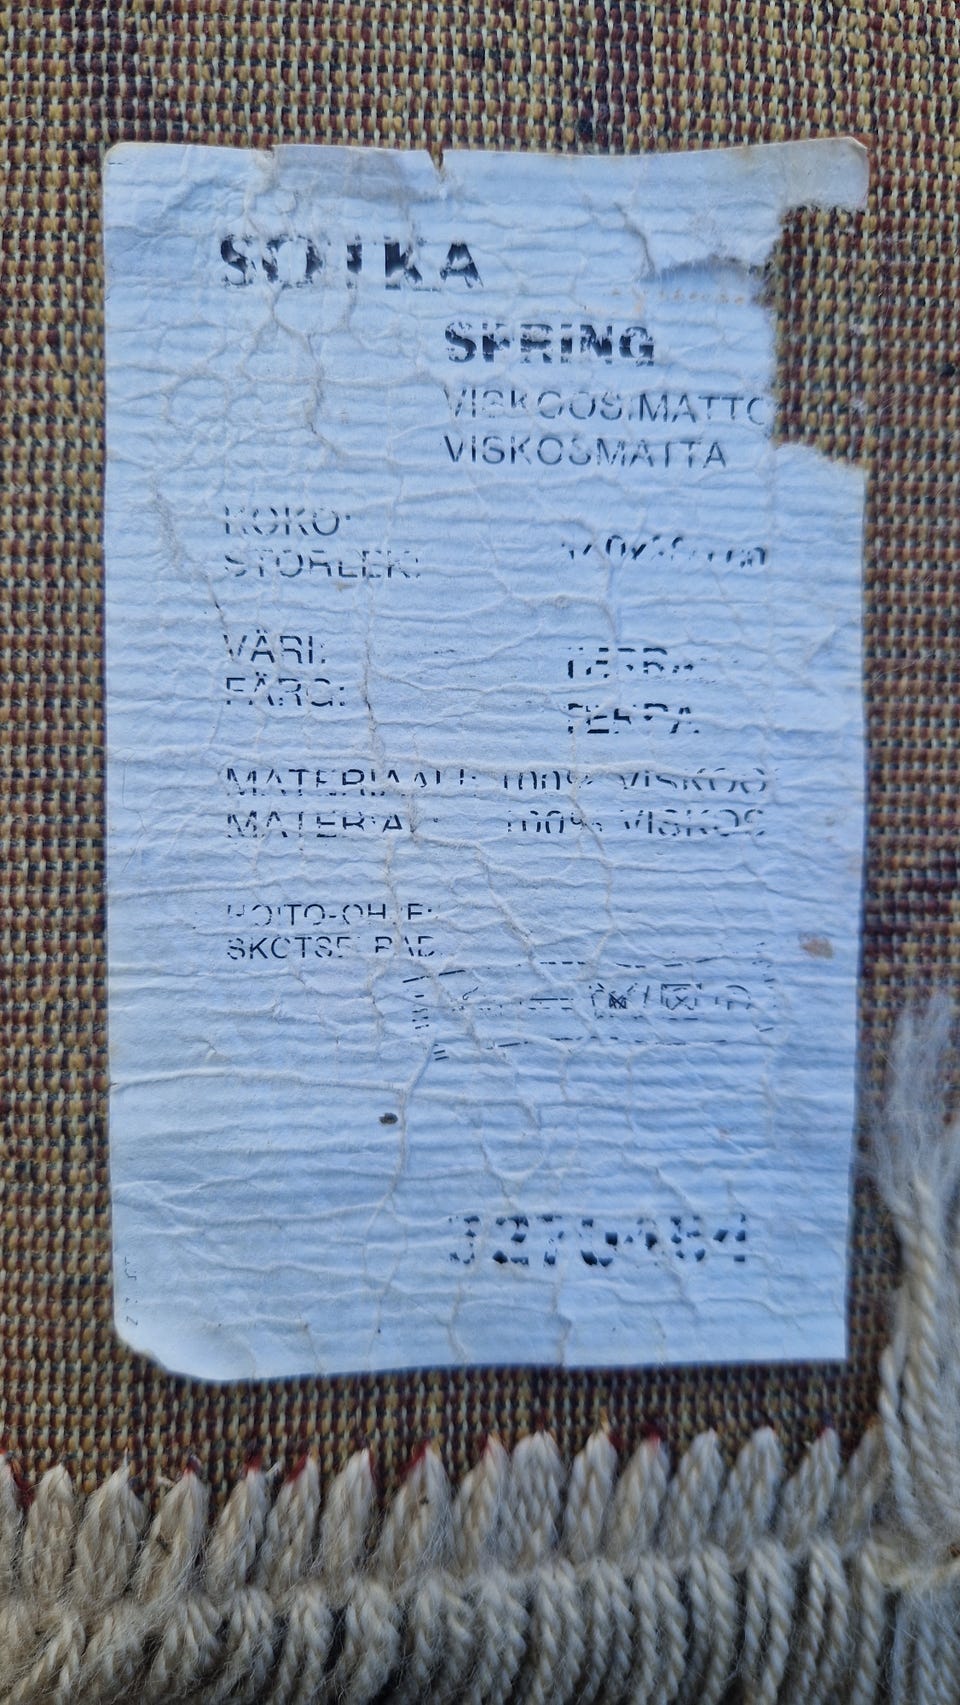 SOTKA
SPRING
VISKOOSIMATTO
VISKOSMATTA
KOKO:
STORLEK:
VÄRI: TERRA
FÄRG: TERRA
MATERIAALI: 100% VISKOO
MATERIAL: 100% VISKOS
HOITO-OHJE:
SKÖTSELRÅD: